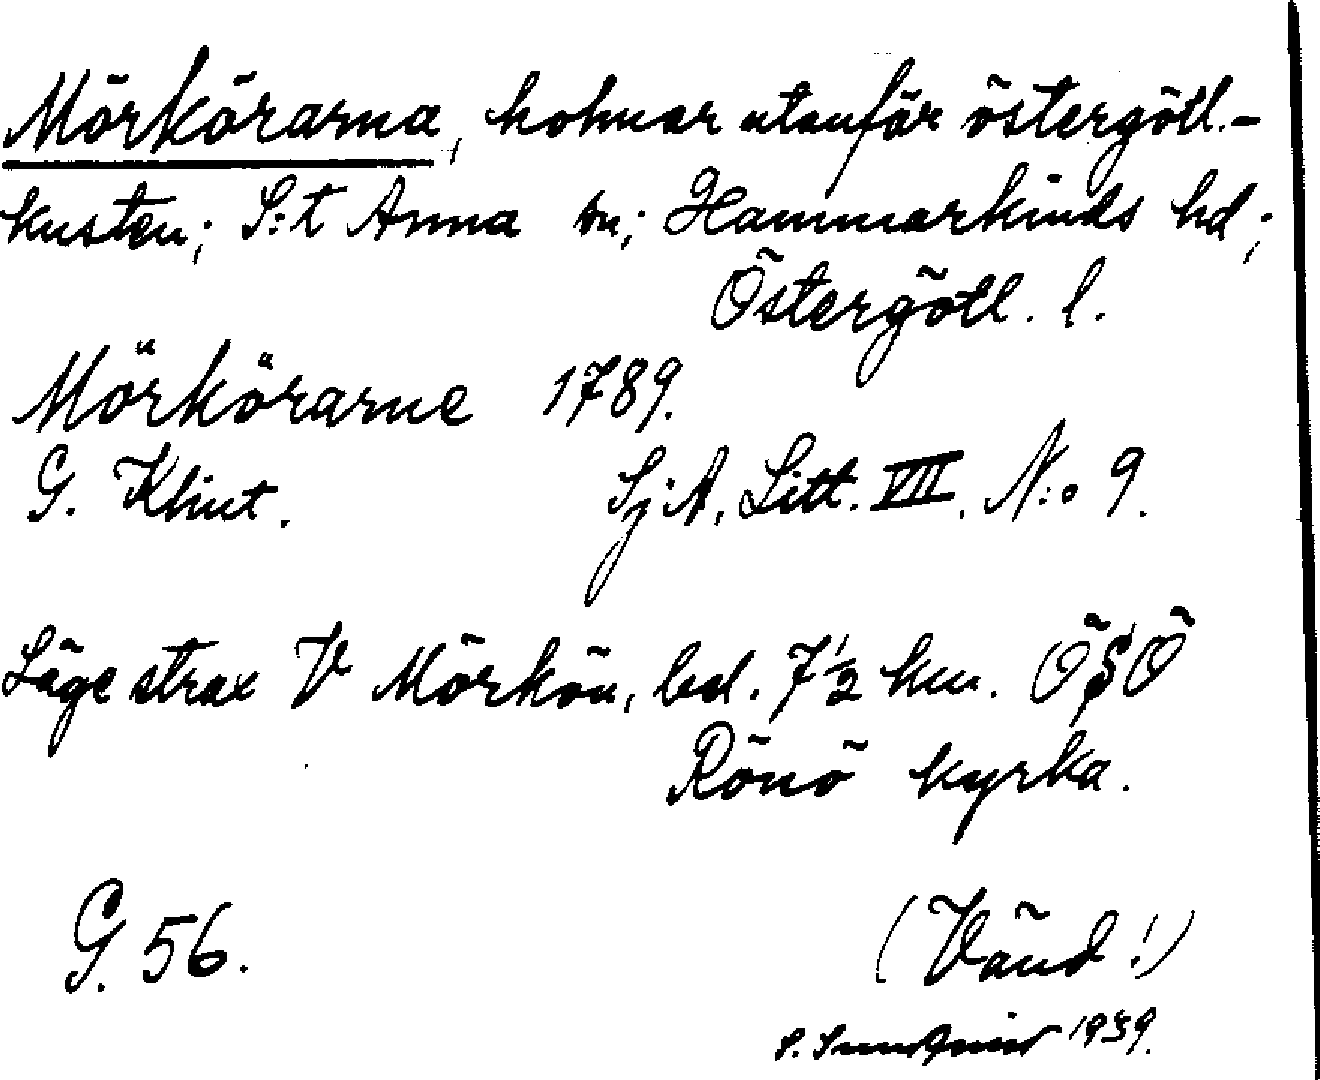 Mörkörarna, holmar utanför östergötl.-
kusten; S:t Anna sn; Hammarkinds hd;
Östergötl. l.
Mörkörarne 1789.
G. Klint. Sj.A. Litt. VII. N:o 9.
Läge strax V Mörkön, bel. 7 1/2 km. ÖSÖ
Rönö kyrka.
G. 56. (Vänd!)
S. 1939.